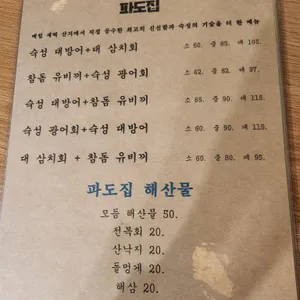 파도집
매일 새벽 산지에서 직접 공수한 최고의 신선함과 숙성의 기술을 더 한 메뉴
숙성 대방어+대 삼치회 소 60. 중 85. 대 105.
참돔 유비끼+숙성 광어회 소 62. 중 82. 대 97.
숙성 대방어+참돔 유비끼 소 65. 중 90. 대 115.
숙성 광어회+숙성 대방어 소 60. 중 90. 대 115.
대 삼치회 + 참돔 유비끼 소 60. 중 80. 대 95.
파도집 해산물
모듬 해산물 50.
전복회 20.
산낙지 20.
돌멍게 20.
해삼 20.